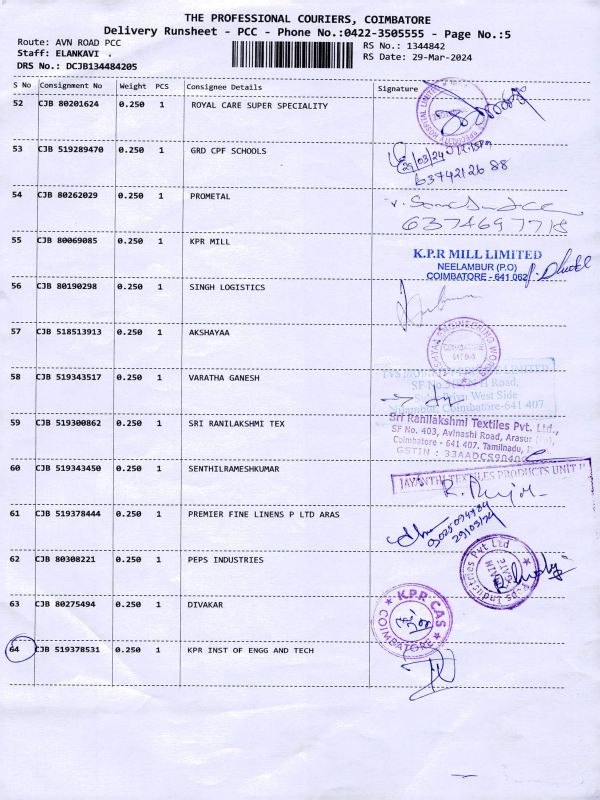 THE PROFESSIONAL COURIERS, COIMBATORE
Delivery Runsheet - PCC - Phone No.:0422-3505555 - Page No.:5
Route: AVN ROAD PCC
Staff: ELANKAVI
DRS No.: DCJB134484205
RS No.: 1344842
RS Date: 29-Mar-2024
S No Consignment No Weight PCS Consignee Details Signature
52 CJB 80201624 0.250 1 ROYAL CARE SUPER SPECIALITY
53 CJB 519289470 0.250 1 GRD CPF SCHOOLS
29/03/24
6374212688
54 CJB 80262029 0.250 1 PROMETAL
6374697718
55 CJB 80069085 0.250 1 KPR MILL
K.P.R MILL LIMITED
NEELAMBUR (P.O)
COIMBATORE - 641 062
56 CJB 80190298 0.250 1 SINGH LOGISTICS
57 CJB 518513913 0.250 1 AKSHAYAA
ENGINEERING WORKS
COIMBATORE
58 CJB 519343517 0.250 1 VARATHA GANESH
Road,
West Side
Coimbatore-641 407
59 CJB 519300862 0.250 1 SRI RANILAKSHMI TEX
Sri Ranilakshmi Textiles Pvt. Ltd.,
SF No. 403, Avinashi Road, Arasur
Coimbatore - 641 407. Tamilnadu,
GSTIN : 33AADCS9040
60 CJB 519343450 0.250 1 SENTHILRAMESHKUMAR
JAYANTHI TEXTILES PRODUCTS UNIT II
61 CJB 519378444 0.250 1 PREMIER FINE LINENS P LTD ARAS
29/03/24
62 CJB 80308221 0.250 1 PEPS INDUSTRIES
Peps Industries Pvt Ltd
MAIN GATE
63 CJB 80275494 0.250 1 DIVAKAR
KPR CAS
COIMBATORE
64 CJB 519378531 0.250 1 KPR INST OF ENGG AND TECH